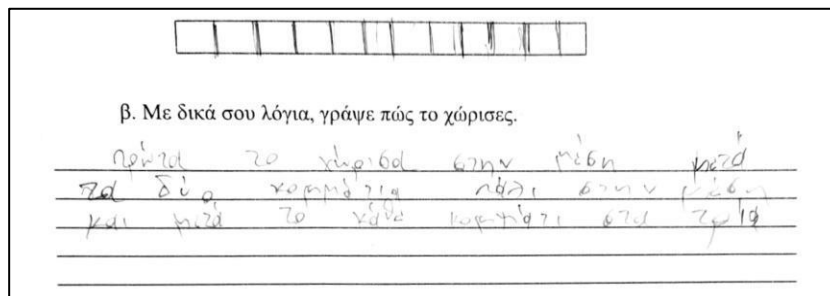 β. Με δικά σου λόγια, γράψε πώς το χώρισες.
πρώτα το χώρισα στην μέση μετά
τα δύο κομμάτια πάλι στην μέση
και μετά το κάθε κομμάτι στα τρία